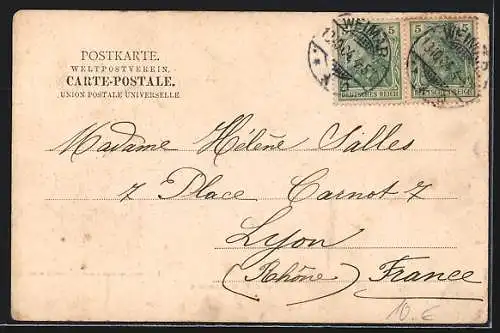 POSTKARTE.
WELTPOSTVEREIN.
CARTE-POSTALE.
UNION POSTALE UNIVERSELLE
WEIMAR
5 5
DEUTSCHES REICH DEUTSCHES REICH
Madame Hélène Salles
7 Place Carnot 7
Lyon
(Rhône) France
10.€